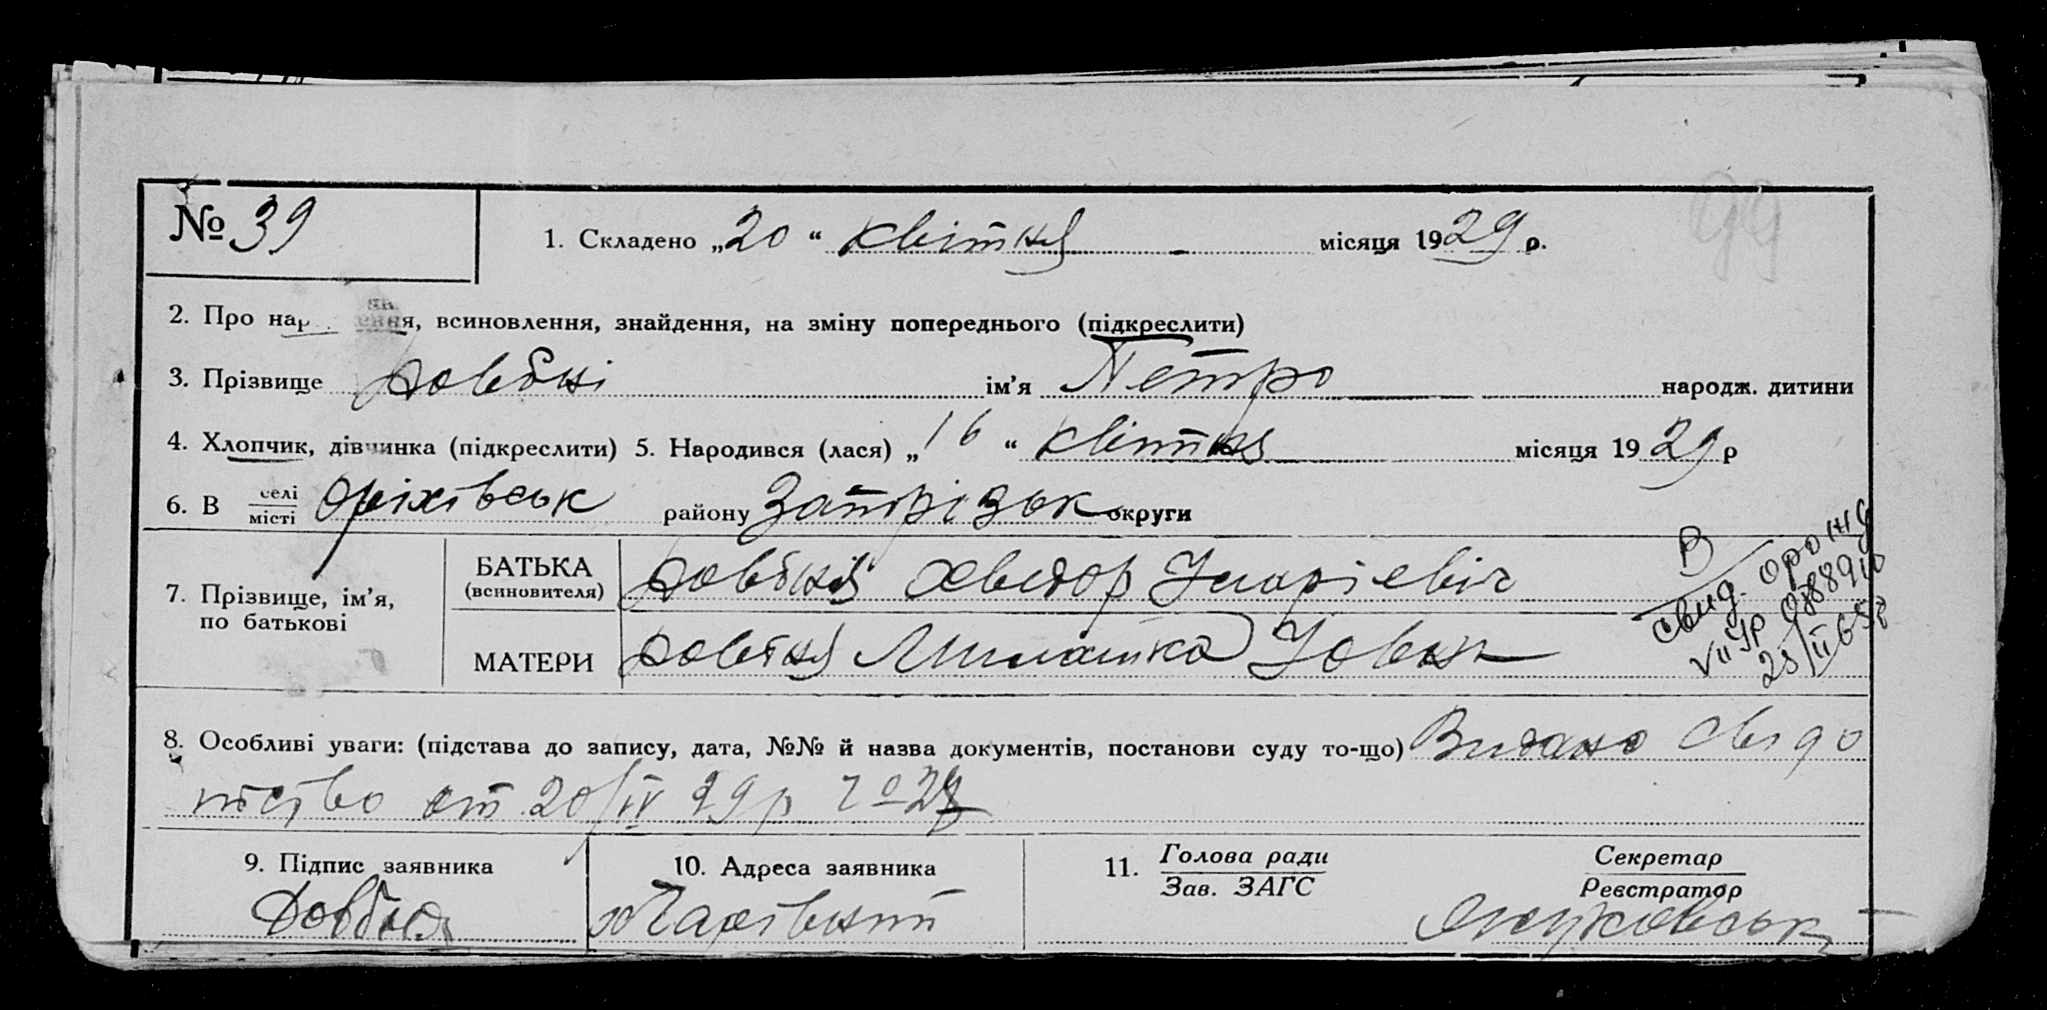 № 39
1. Складено „20“ квітня місяця 1929 р.
99
2. Про нар ення, всиновлення, знайдення, на зміну попереднього (підкреслити)
3. Прізвище Довбні ім’я Петро народж. дитини
4. Хлопчик, дівчинка (підкреслити) 5. Народився (лася) „16“ квітня місяця 1929 р
6. В селі місті Оріхівськ району Запорізьк округи
7. Прізвище, ім’я, по батькові
БАТЬКА (всиновителя) Довбня Хведор
МАТЕРИ Довбня Милашка
В
свид. о рожд
VII УР
23/II 65
8. Особливі уваги: (підстава до запису, дата, №№ й назва документів, постанови суду то-що) Видано свідо
цтво от 20/IV 29 р
9. Підпис заявника
Довбня
10. Адреса заявника
11. Голова ради
Зав. ЗАГС
Секретар
Реєстратор